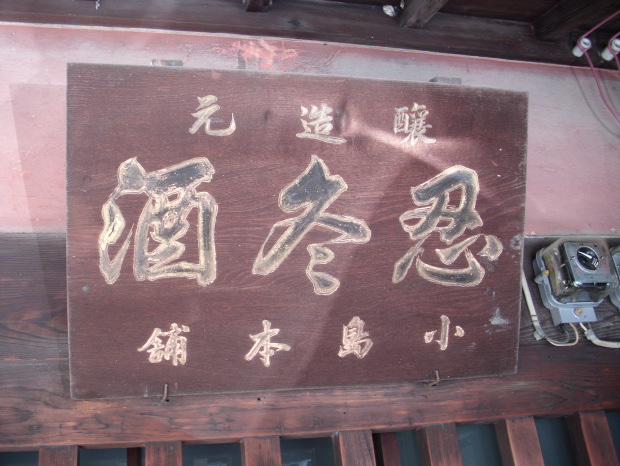 醸造元
忍冬酒
小島本舖